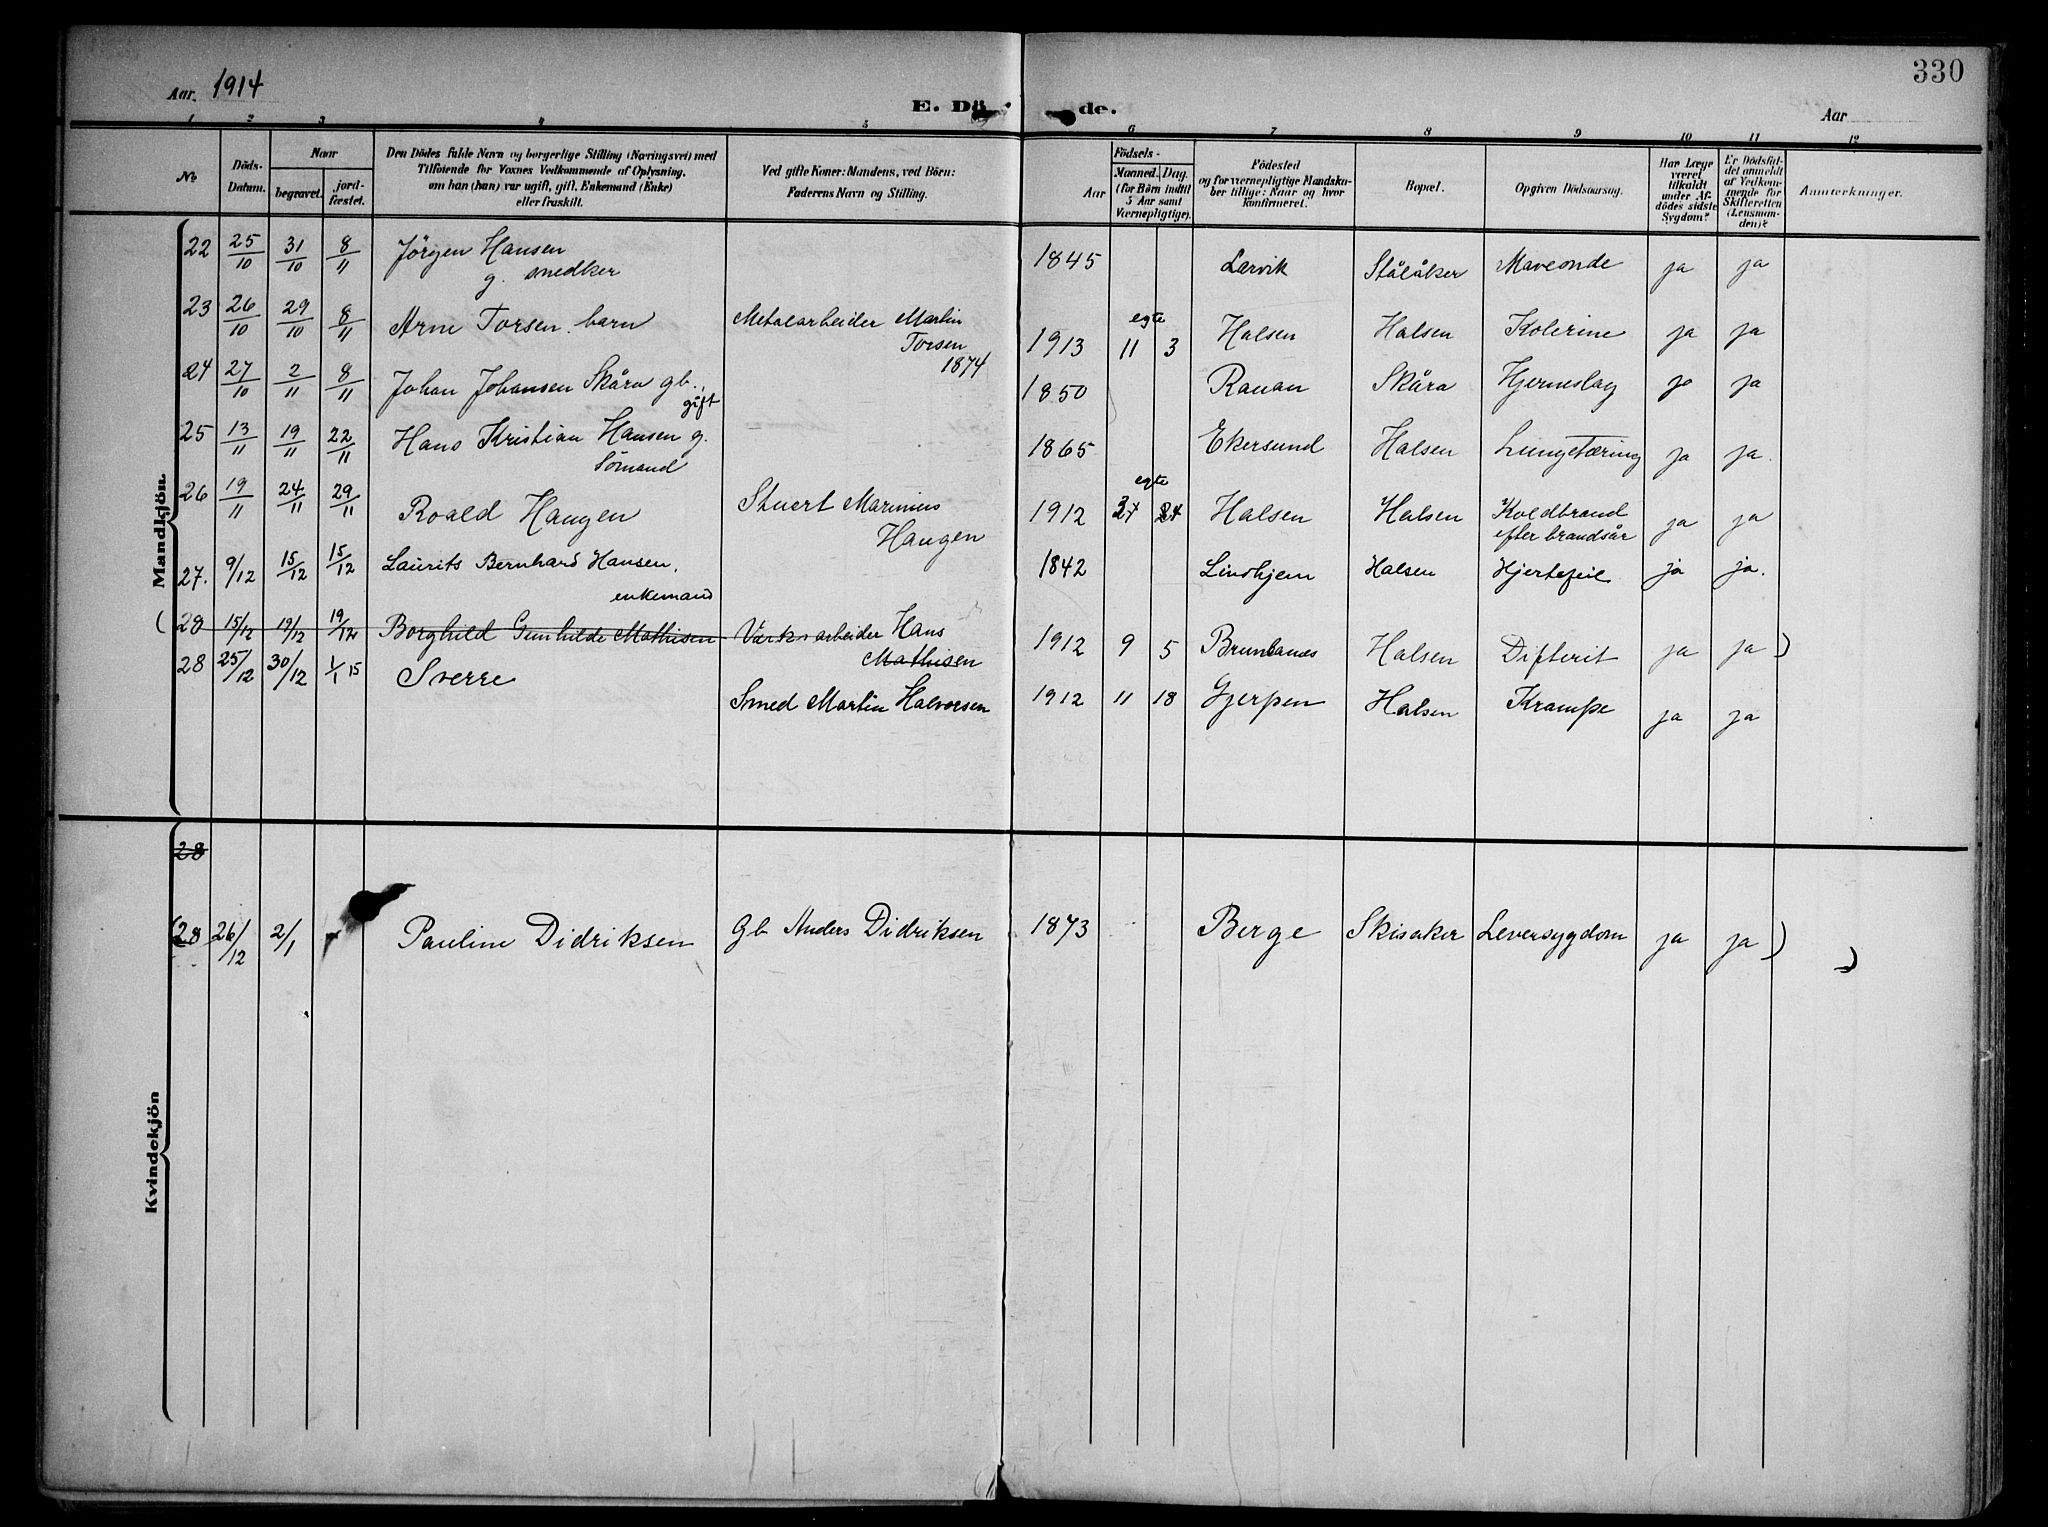 330
Aar. 1914
E. Dö de.
Aar
1 2 3 4 5 6 7 8 9 10 11 12
No
Döds-Datum.
Naar
begravet.
jordfæstet.
Den Dödes fulde Navn og borgerlige Stilling (Næringsvei) med
Tilföiende for Voxnes Vedkommende af Oplysning,
om han (hun) var ugift, gift, Enkemand (Enke)
eller fraskilt.
Ved gifte Koner: Mandens, ved Börn:
Faderens Navn og Stilling.
Födsels-
Aar
Maaned. Dag.
(for Börn indtil
5 Aar samt
Værnepligtige).
Födested
og for værnepligtige Mandska-
ber tillige: Naar og hvor
Konfirmeret.
Bopæl.
Opgiven Dödsaarsag.
Har Læge
været
tilkaldt
under Af-
dödes sidste
Sygdom?
Er Dödsfal-
det anmeldt
af Vedkom-
mende for
Skifteretten
(Lensman-
den)?
Anmærkninger.
Mandkjön.
22 25/10 31/10 8/11 Jörgen Hansen 1845 Larvik Ståláker Maveonde ja ja
g. snedker
23 26/10 29/10 8/11 Arne Torsen. barn Metalarbeider Martin Torsen 1874 1913 egte 11 3 Halsen Halsen Kolerine ja ja
24 27/10 2/11 8/11 Johan Johansen Skåra gb., gift 1850 Ranan Skåra Hjerneslag ja ja
25 13/11 19/11 22/11 Hans Kristian Hansen g. 1865 Ekersund Halsen Lungetæring ja ja.
Sömand
26 19/11 24/11 29/11 Roald Haugen Stuert Marinius Haugen 1912 egte 24 Halsen Halsen Koldbrand efter brandsår ja ja
27. 9/12 15/12 15/12 Laurits Bernhard Hansen, 1842 Lindhjem Halsen Hjertefeil ja ja.
enkemand
(28 15/12 19/12 19/12 Borghild Gunhilde Mathisen Værksarbeider Hans Mathisen 1912 9 5 Brunlanes Halsen Difterit ja ja )
28 25/12 30/12 1/1 15 Sverre Smed Martin Halvorsen 1912 11 18 Gjerpen Halsen Krampe ja ja
Kvindekjön
28
(28 26/12 2/1 Pauline Didriksen Gb Anders Didriksen 1873 Berge Skisaker Leversygdom ja ja )